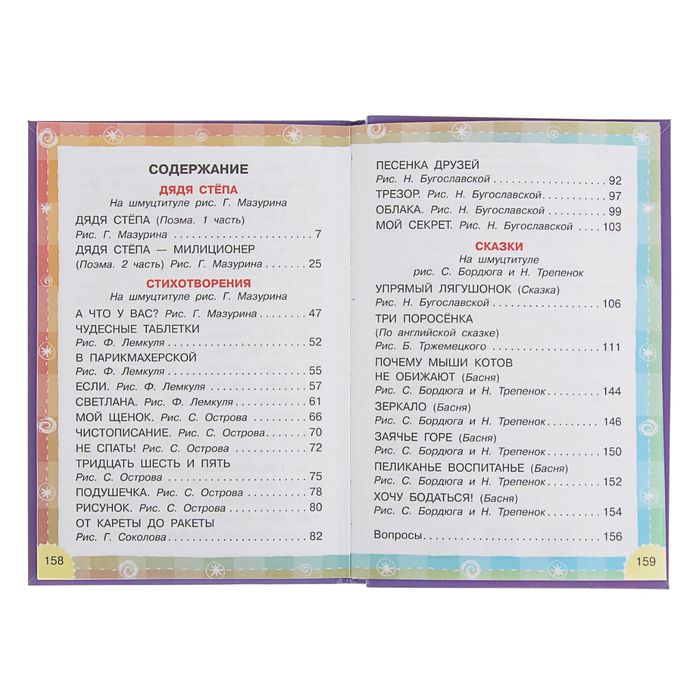 СОДЕРЖАНИЕ
ДЯДЯ СТЁПА
На шмуцтитуле рис. Г. Мазурина
ДЯДЯ СТЁПА (Поэма. 1 часть)
Рис. Г. Мазурина . . . . . . . . . . . . . . . . . 7
ДЯДЯ СТЁПА — МИЛИЦИОНЕР
(Поэма. 2 часть) Рис. Г. Мазурина . . . . . . . . 25
СТИХОТВОРЕНИЯ
На шмуцтитуле рис. Г. Мазурина
А ЧТО У ВАС? Рис. Г. Мазурина . . . . . . . 47
ЧУДЕСНЫЕ ТАБЛЕТКИ
Рис. Ф. Лемкуля . . . . . . . . . . . . . . . . . 52
В ПАРИКМАХЕРСКОЙ
Рис. Ф. Лемкуля . . . . . . . . . . . . . . . . . 55
ЕСЛИ. Рис. Ф. Лемкуля . . . . . . . . . . . . 57
СВЕТЛАНА. Рис. Ф. Лемкуля . . . . . . . . . 61
МОЙ ЩЕНОК. Рис. С. Острова . . . . . . . 66
ЧИСТОПИСАНИЕ. Рис. С. Острова . . . . . 70
НЕ СПАТЬ! Рис. С. Острова . . . . . . . . . 72
ТРИДЦАТЬ ШЕСТЬ И ПЯТЬ
Рис. С. Острова . . . . . . . . . . . . . . . . . 75
ПОДУШЕЧКА. Рис. С. Острова . . . . . . . . 78
РИСУНОК. Рис. С. Острова . . . . . . . . . . 80
ОТ КАРЕТЫ ДО РАКЕТЫ
Рис. Г. Соколова . . . . . . . . . . . . . . . . 82
158
ПЕСЕНКА ДРУЗЕЙ
Рис. Н. Бугославской . . . . . . . . . . . . . 92
ТРЕЗОР. Рис. Н. Бугославской . . . . . . . . 97
ОБЛАКА. Рис. Н. Бугославской . . . . . . . . 99
МОЙ СЕКРЕТ. Рис. Н. Бугославской . . . . 103
СКАЗКИ
На шмуцтитуле
рис. С. Бордюга и Н. Трепенок
УПРЯМЫЙ ЛЯГУШОНОК (Сказка)
Рис. Н. Бугославской . . . . . . . . . . . . . 106
ТРИ ПОРОСЁНКА
(По английской сказке)
Рис. Б. Тржемецкого . . . . . . . . . . . . . 111
ПОЧЕМУ МЫШИ КОТОВ
НЕ ОБИЖАЮТ (Басня)
Рис. С. Бордюга и Н. Трепенок . . . . . . 144
ЗЕРКАЛО (Басня)
Рис. С. Бордюга и Н. Трепенок . . . . . . 146
ЗАЯЧЬЕ ГОРЕ (Басня)
Рис. С. Бордюга и Н. Трепенок . . . . . . 150
ПЕЛИКАНЬЕ ВОСПИТАНЬЕ (Басня)
Рис. С. Бордюга и Н. Трепенок . . . . . . 152
ХОЧУ БОДАТЬСЯ! (Басня)
Рис. С. Бордюга и Н. Трепенок . . . . . . 154
Вопросы . . . . . . . . . . . . . . . . . . . . . 156
159